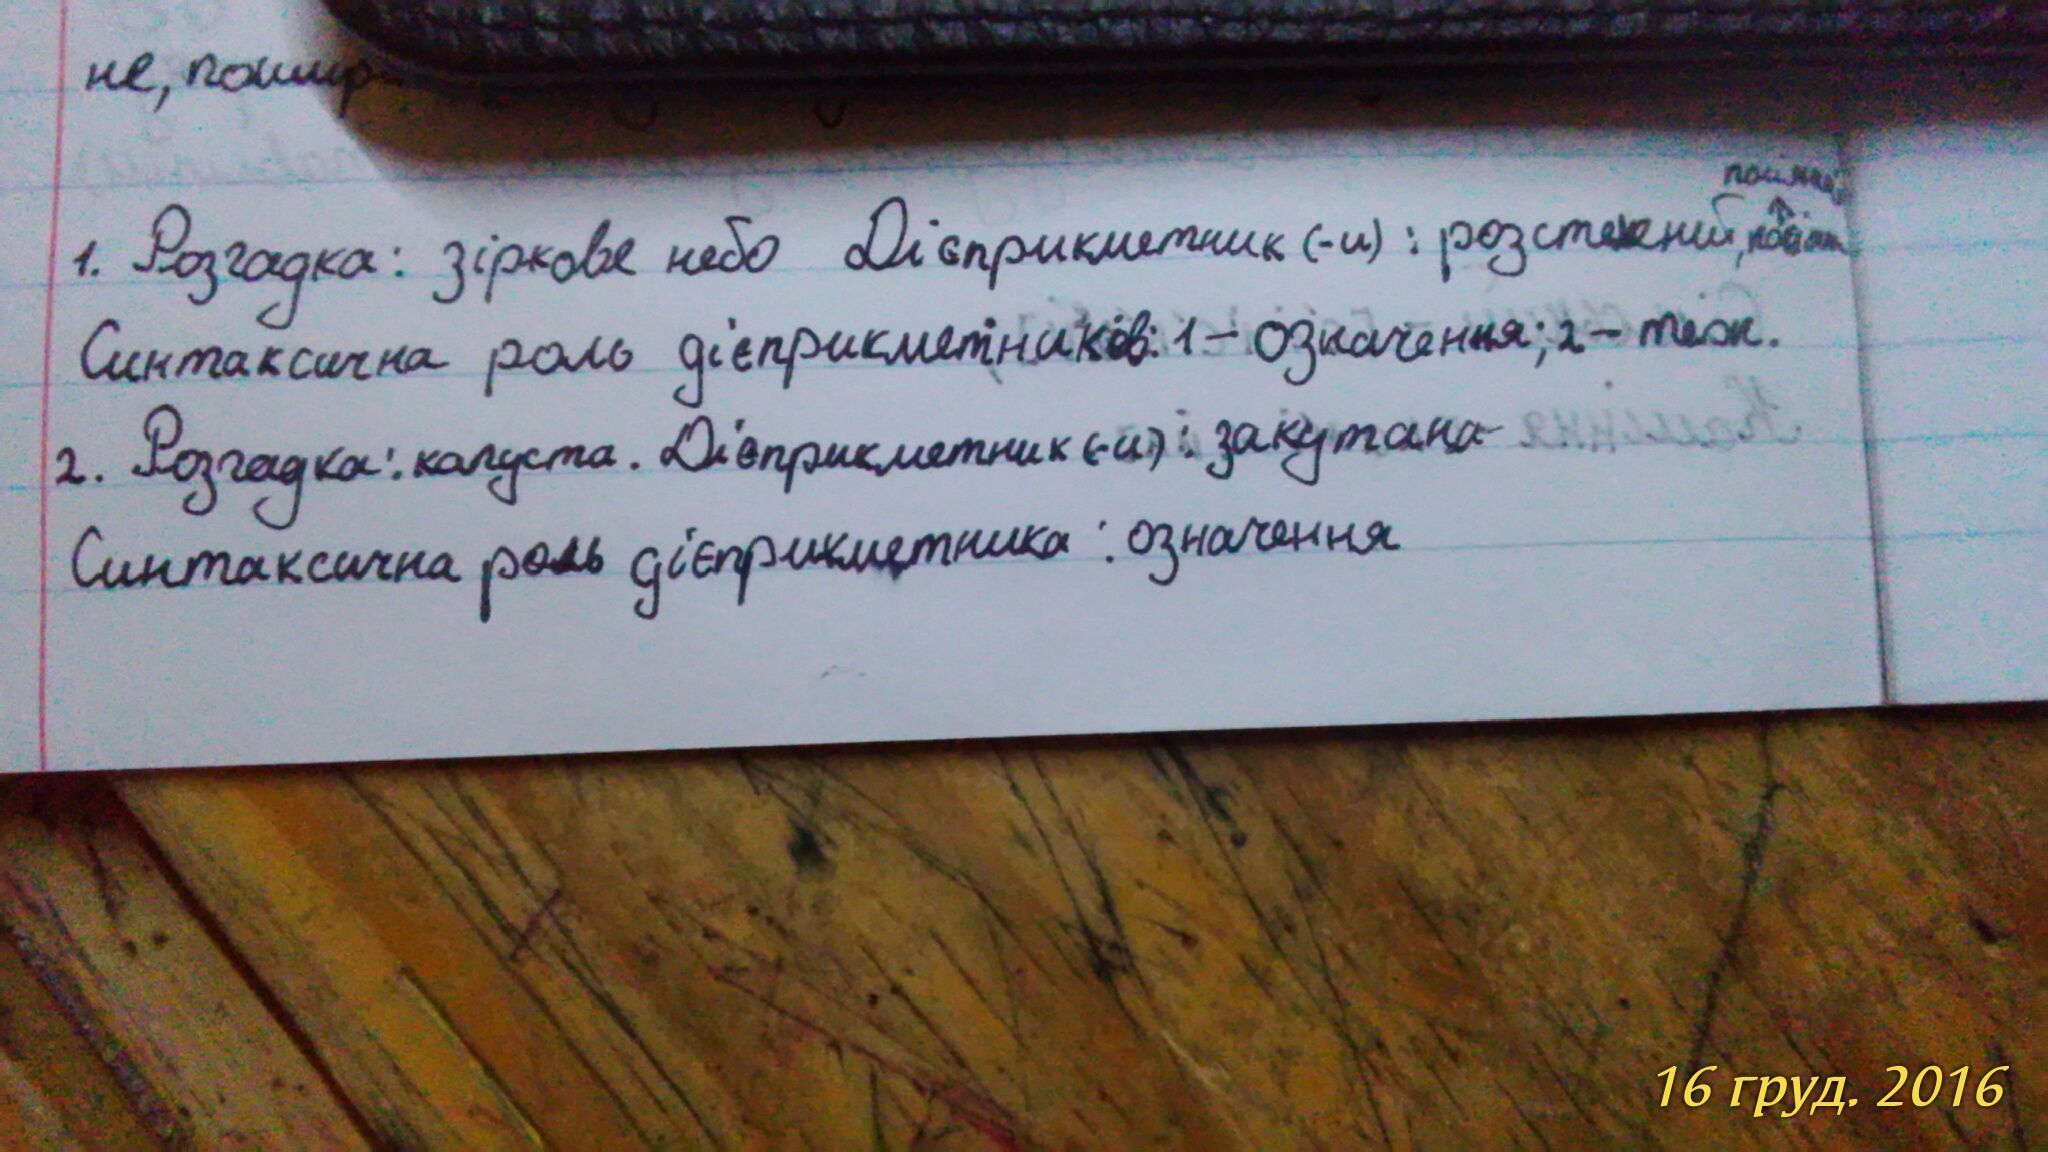 не,
1. Розгадка: зіркове небо Дієприкметник (-и): розстелений,
Синтаксична роль дієприкметників: 1 – означення; 2 – теж.
2. Розгадка: капуста. Дієприкметник (-и): закутана
Синтаксична роль дієприкметника: означення
16 груд. 2016